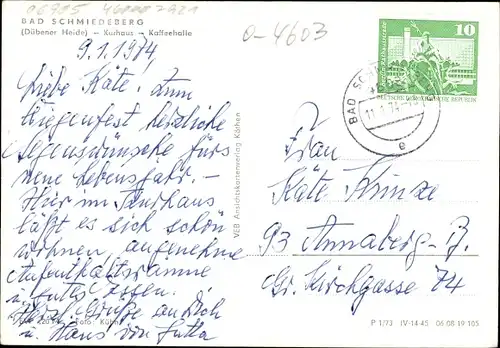 06905 46000 2921
BAD SCHMIEDEBERG
(Dübener Heide) – Kurhaus – Kaffeehalle
0-4603
9.1.1974,
Liebe Käte. Zum
Wiegenfest herzliche
Segenswünsche fürs
neue Lebensjahr. –
Hier im Kurhaus
läßt es sich schön
wohnen, angenehme
Aufenthaltsräume
u. gutes Essen.
Herzl. Grüße an Dich
u. Hans von Jutta
Foto: Kühn
VEB Ansichtskartenverlag Köthen
10
DEUTSCHE DEMOKRATISCHE REPUBLIK
BAD SCH
e
Frau
Käte Kunze
93 Annaberg-B.
Gr. Kirchgasse 74
P 1/73 IV-14-45 06 08 19 105